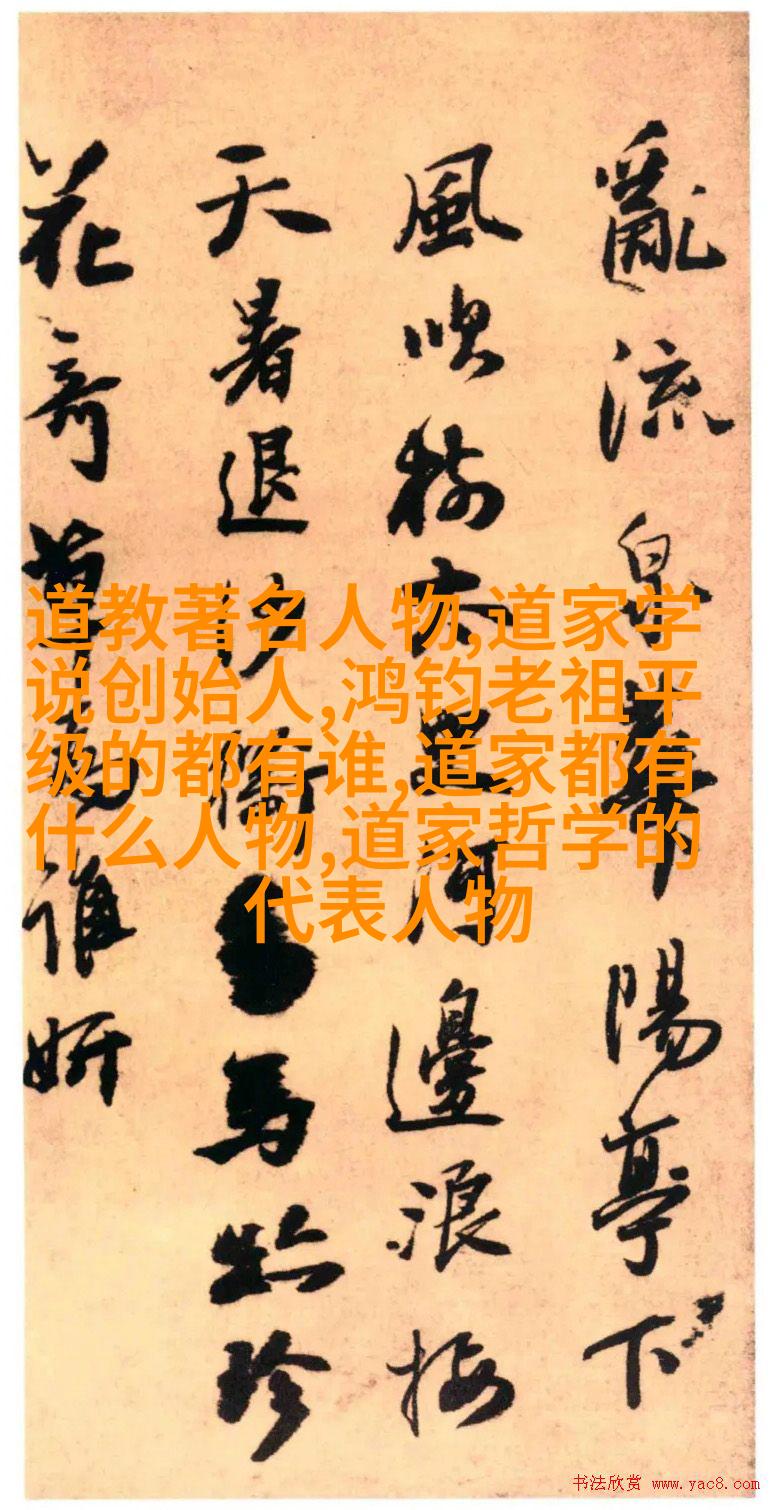 亂流陽亭下
風吹樹木河邊浪接
天暑退沙馬珍
花奇草誰妍
道教著名人物,道家学
说创始人,鸿钧老祖平
级的都有谁,道家都有
什么人物,道家哲学的
代表人物
书法欣赏 www.yac8.com